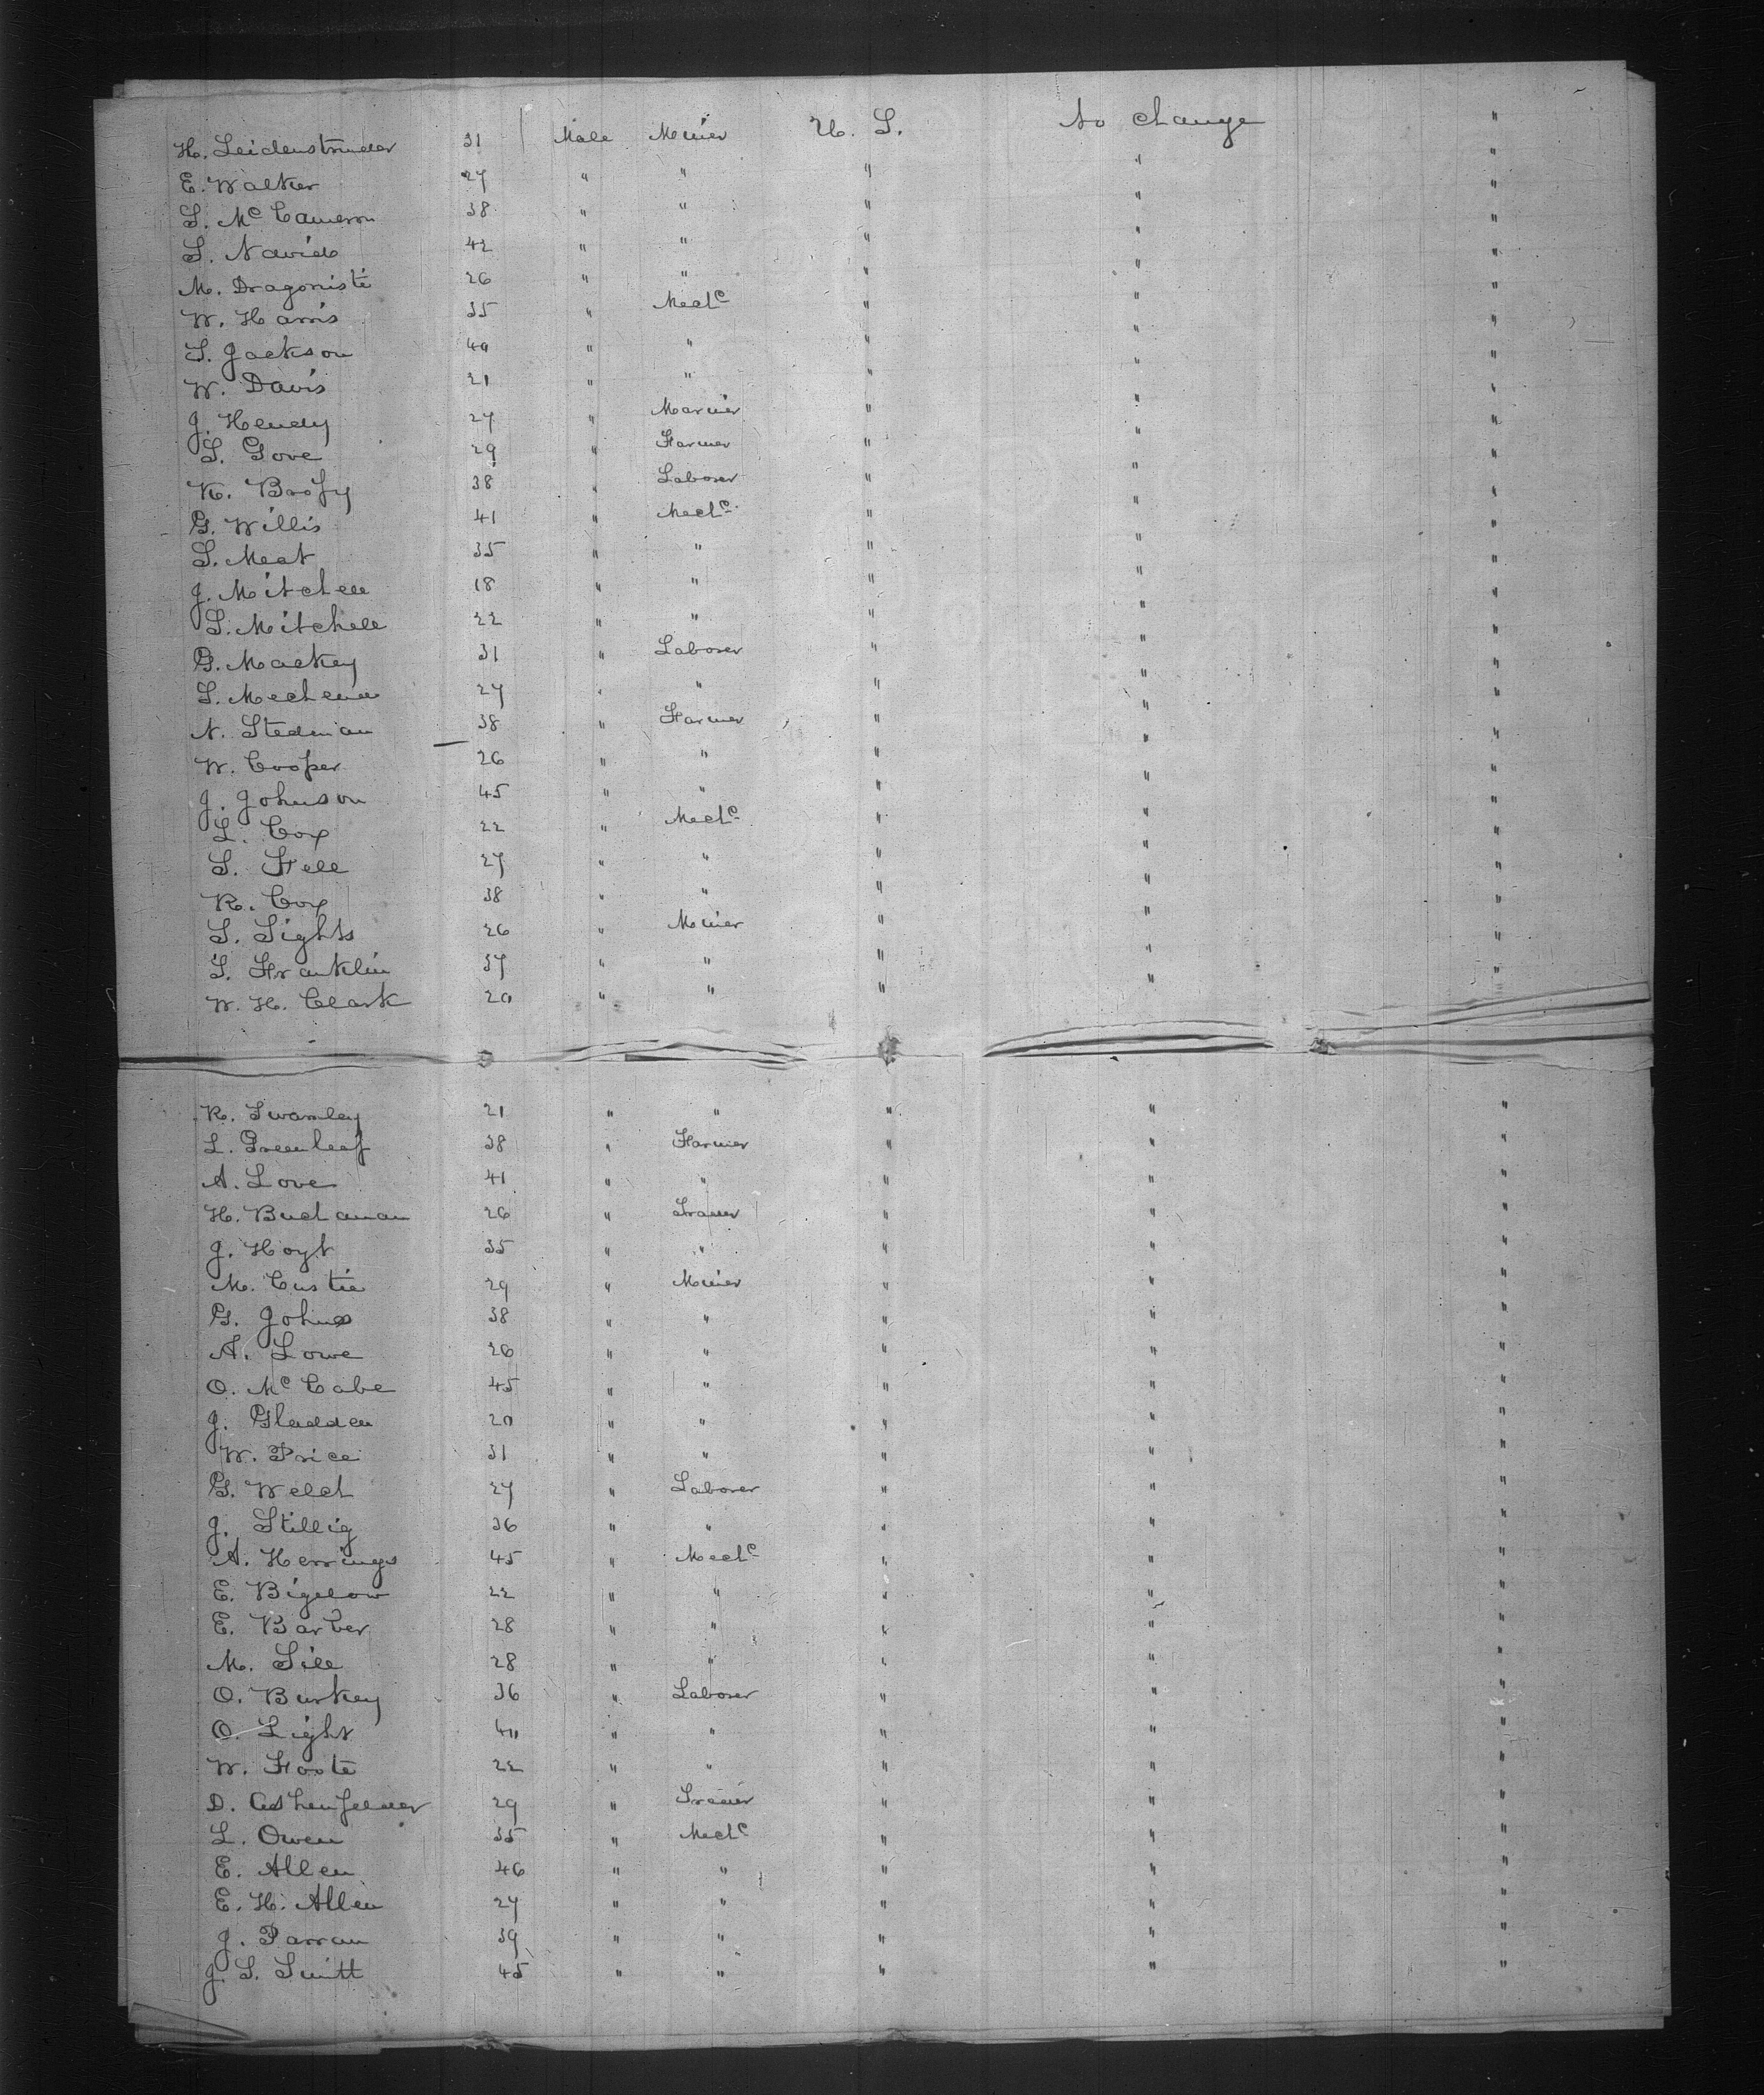 H. Leidenstrueder 31 Male Miner U. S. to change "
E. Walker 27 " " " " "
S. Mc Cameron 38 " " " " "
S. Navids 42 " " " " "
M. Dragoniste 26 " " " " "
W. Harris 35 " Mech^c " " "
S. Jackson 40 " " " " "
W. Davis 21 " " " " "
J. Hendy 27 " Marier " " "
S. Gove 29 " Farmer " " "
K. Boofy 38 " Laborer " " "
G. Willis 41 " Mech^c " " "
S. Meat 35 " " " " "
J. Mitchell 18 " " " " "
S. Mitchell 22 " " " " "
G. Mackey 31 " Laborer " " "
S. 27 " " " " "
N. Stedman 38 " Farmer " " "
W. Cooper 26 " " " " "
J. Johnson 45 " " " " "
L. Cox 22 " Mech^c " " "
S. Fell 27 " " " " "
R. Cox 38 " " " " "
S. Sights 26 " Miner " " "
S. Franklin 37 " " " " "
W. H. Clark 20 " " " " "
R. Swamley 21 " " " " "
L. Greenleaf 38 " Farmer " " "
A. Love 41 " " " " "
H. Buchanan 26 " " " "
J. Hoyt 35 " " " " "
M. Custie 29 " Miner " " "
G. Johnes 38 " " " " "
A. Lowe 26 " " " " "
O. Mc Cabe 45 " " " " "
J. Gladden 20 " " " " "
W. Price 31 " " " " "
G. Welch 27 " Laborer " " "
J. Stillig 36 " " " " "
A. Herrings 45 " Mech^c " " "
E. Bigelow 22 " " " " "
E. Barber 28 " " " " "
M. Sill 28 " " " " "
O. Burkey 36 " Laborer " " "
O. Light 40 " " " " "
W. Foote 22 " " " " "
D. Ashenfelder 29 " " " "
L. Owen 35 " Mech^c " " "
E. Allen 46 " " " " "
E. H. Allen 27 " " " " "
J. Parran 39 " " " " "
J. S. Smitt 45 " " " " "